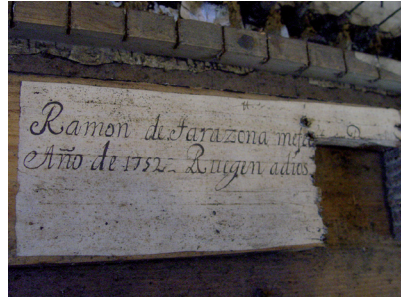 Ramon de tarazona mefa
Año de 1752 - Ruegen adios